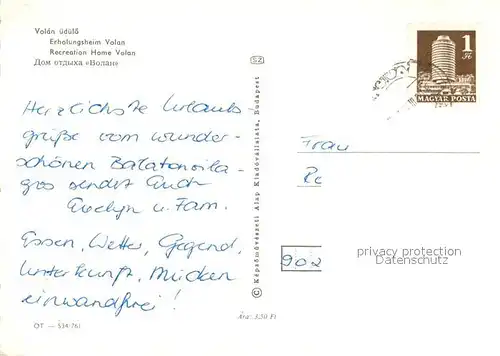 Volán üdülő
Erholungsheim Volan
Recreation Home Volan
Дом отдыха «Волан»
Herzlichste Urlaubs-
grüße vom wunder-
schönen Balatonvila-
gos sendet Euch
Evelyn u. Fam.
Essen, Wetter, Gegend,
Unterkunft, Mücken
einwandfrei!
OT — 534-761
Ára: 3.50 Ft
SZ
© Képzőművészeti Alap Kiadóvállalata, Budapest
1
Ft
MAGYAR POSTA
Frau
Re
902
privacy protection
Datenschutz